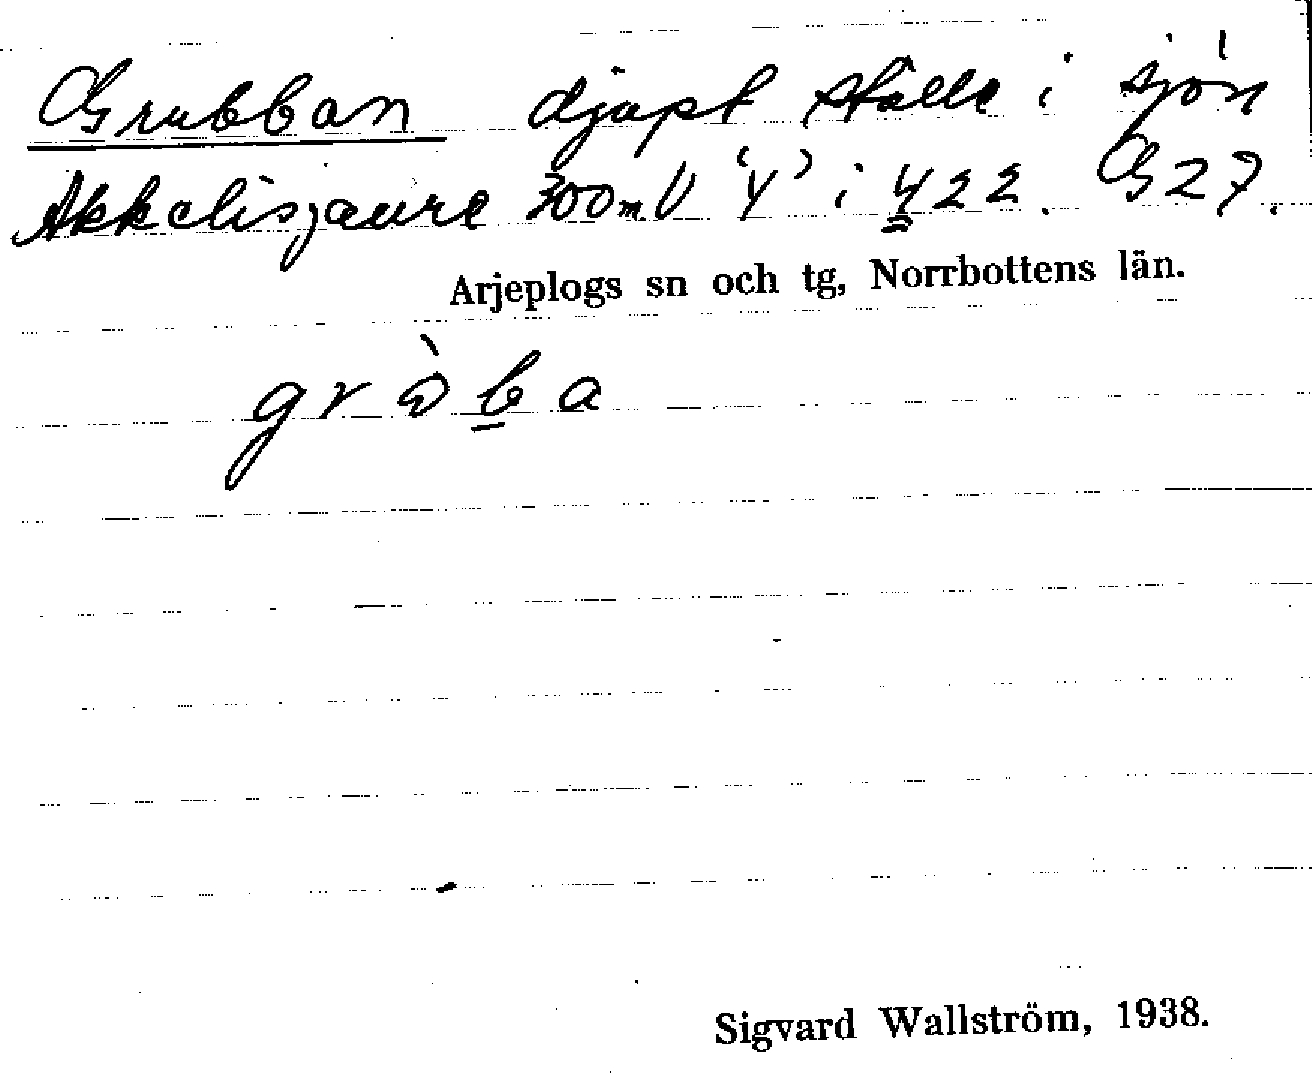 Grubban djupt ställe i sjön
Akkelisjaure 300 m V 'Y' i 422. G 27.
Arjeplogs sn och tg, Norrbottens län.
Sigvard Wallström, 1938.